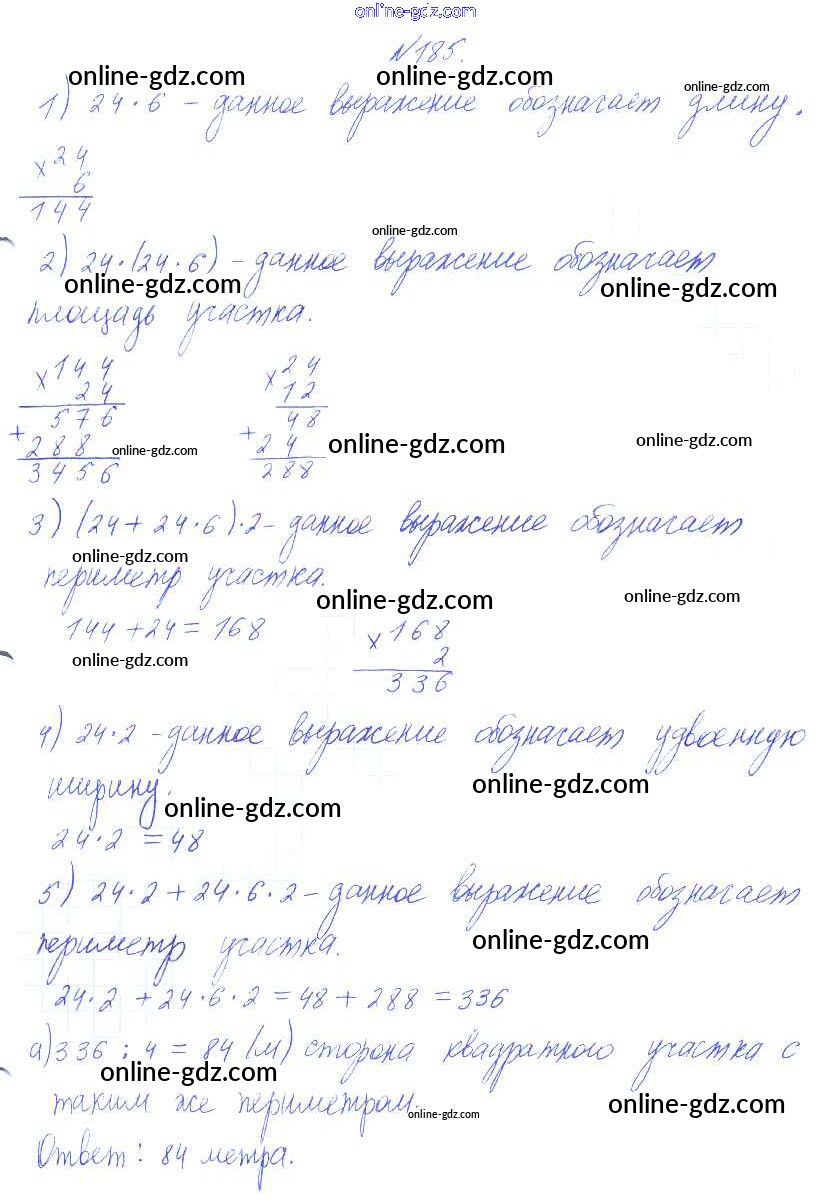 online-gdz.com
№185.
online-gdz.com online-gdz.com online-gdz.com
1) 24·6 – данное выражение обозначает длину.
×24
6
144
online-gdz.com
2) 24·(24·6) – данное выражение обозначает
online-gdz.com online-gdz.com
площадь участка.
×144 ×24
24 12
576 48
+288 +24
3456 288
online-gdz.com online-gdz.com online-gdz.com
3) (24+24·6)·2 – данное выражение обозначает
online-gdz.com
периметр участка.
online-gdz.com online-gdz.com
144+24=168 ×168
2
336
online-gdz.com
4) 24·2 – данное выражение обозначает удвоенную
ширину.
online-gdz.com online-gdz.com
24·2 =48
5) 24·2+24·6·2 – данное выражение обозначает
периметр участка.
online-gdz.com
24·2 +24·6·2 =48+288 =336
а)336:4=84 (м) сторона квадратного участка с
online-gdz.com
таким же периметром.
online-gdz.com online-gdz.com
Ответ: 84 метра.